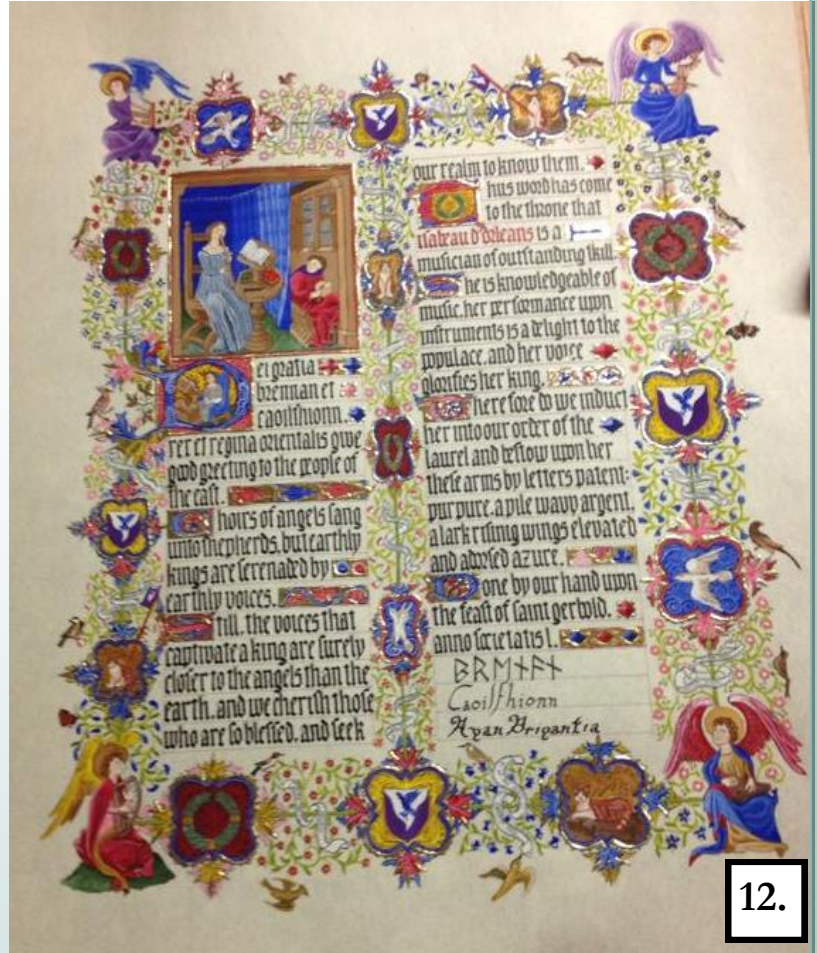 Dei gratia
brennan et
caoilfhionn
rex et regina orientalis give
good greeting to the people of
the east.
Choirs of angels sang
unto shepherds, but earthly
kings are serenaded by
earthly voices.
Still, the voices that
captivate a king are surely
closer to the angels than the
earth. and we cherish those
who are so blessed, and seek
our realm to know them.
Thus word has come
to the throne that
isabeau d'orleans is a
musician of outstanding skill.
She is knowledgeable of
music, her performance upon
instruments is a delight to the
populace, and her voice
glorifies her king.
Therefore do we induct
her into our order of the
laurel and bestow upon her
these arms by letters patent:
purpure, a pile wavy argent,
a lark rising wings elevated
and adorsed azure.
Done by our hand upon
the feast of saint gerbold.
anno societatis l.
ᛒᚱᛖᚾᚨᚾ
Caoilfhionn
Ryan Brigantia
12.